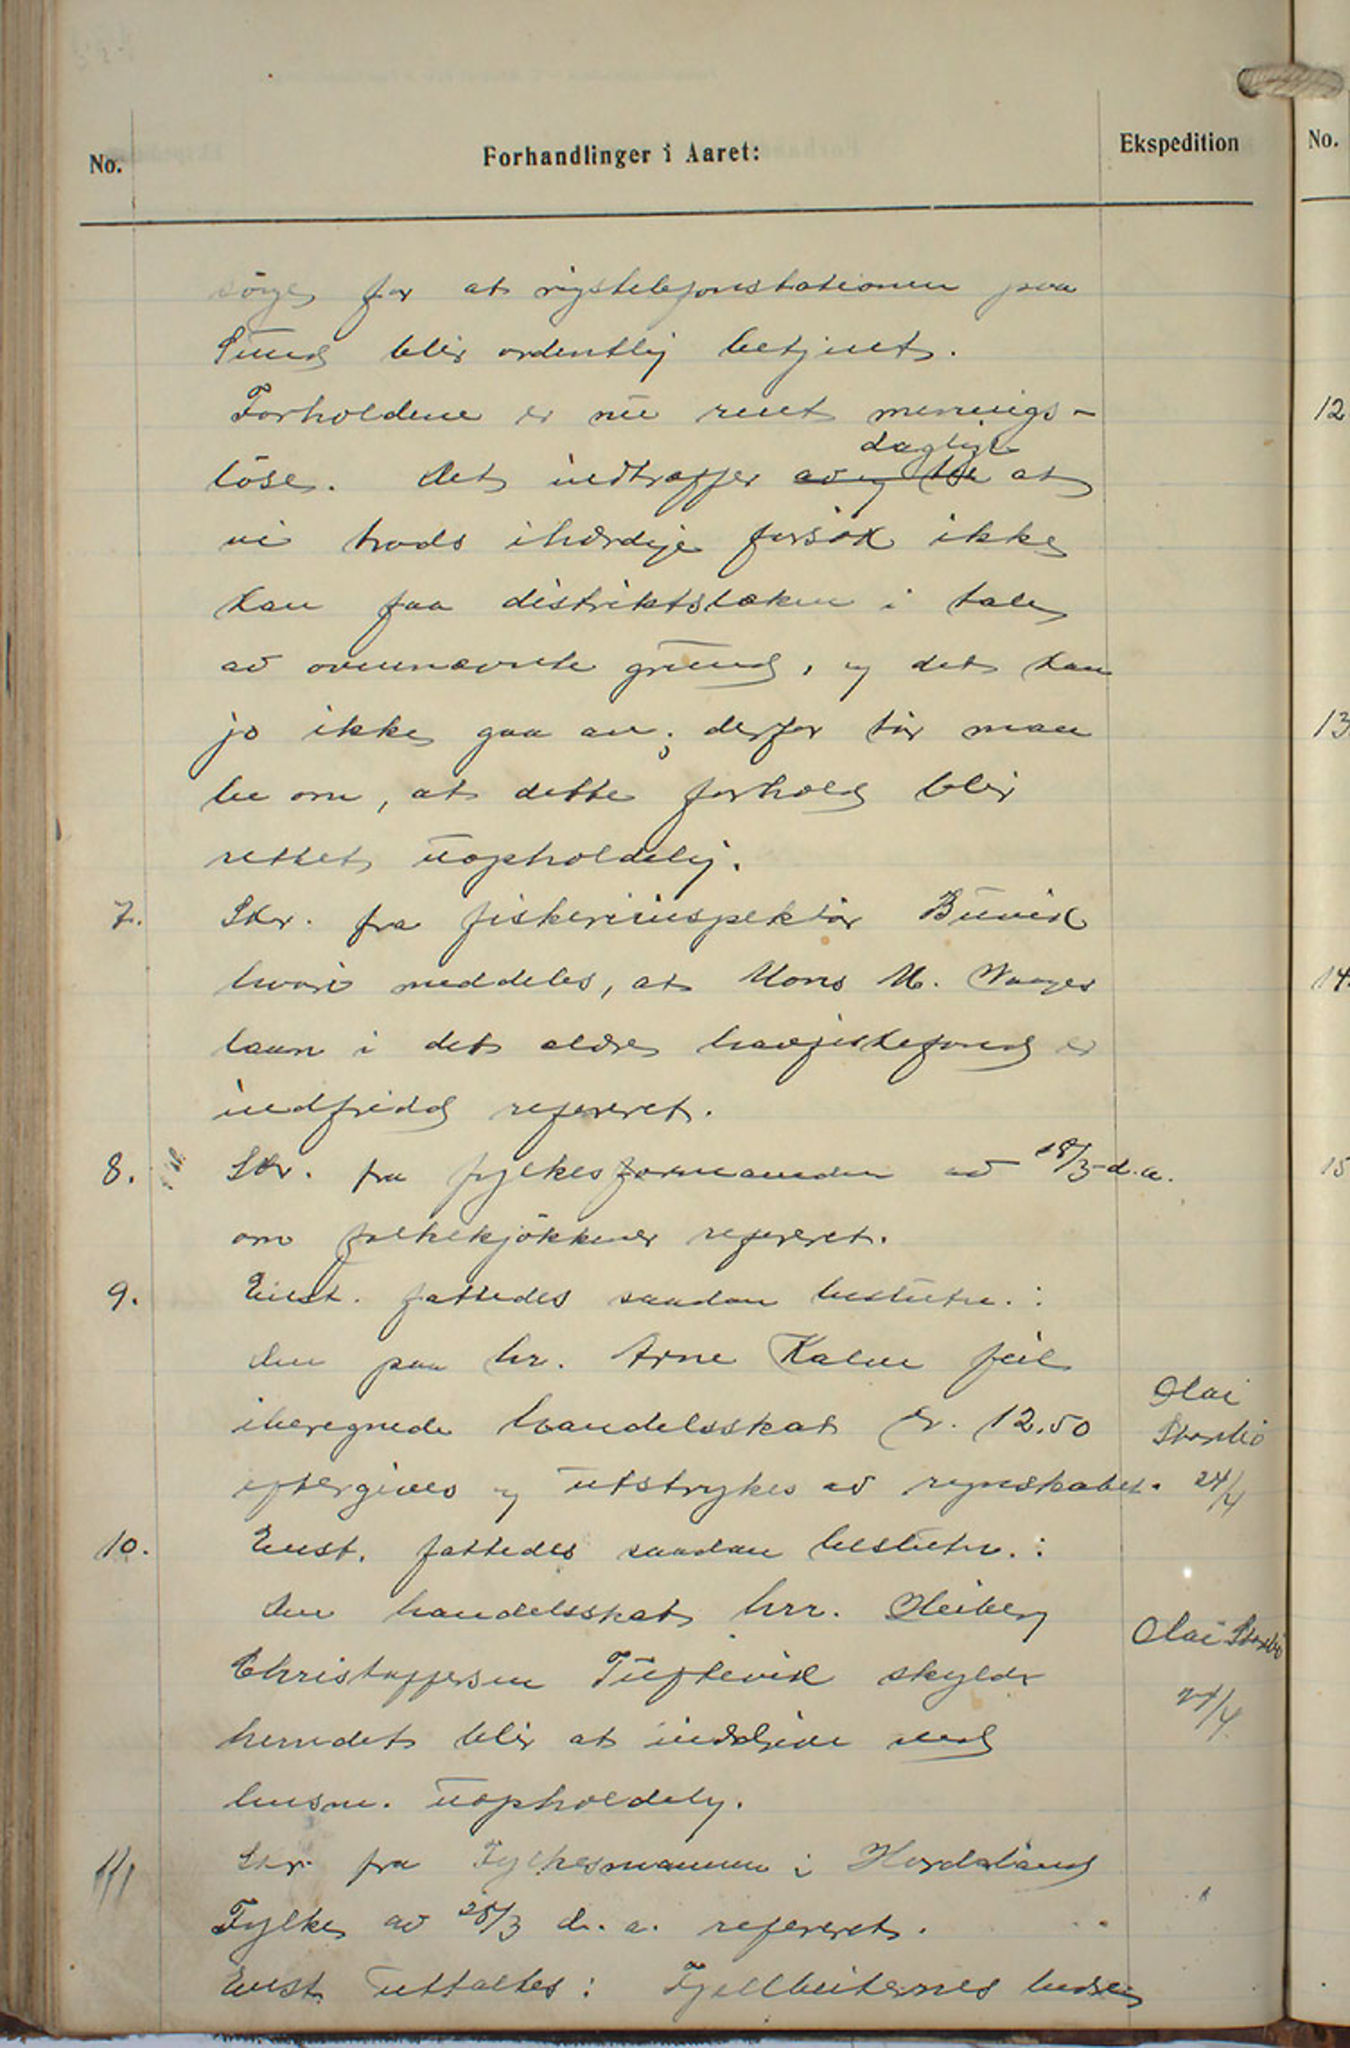 No.
Forhandlinger i Aaret:
Ekspedition
No.
sörge for at rigstelefonstationen paa
Sund blir ordentlig betjent.
Forholdene er nu rent menings-
löse. Det indtræffer daglig at
vi trods ihærdige forsök ikke
kan faa distriktslæken i tale
av ovennævnte grund, og det kan
jo ikke gaa an; derfor tör man
be om, at dette forhold blir
rettet uopholdelig.
7. Skr. fra fiskeriinspektör Buvik
hvori meddeles, at Mons M. Vaages
laan i det ældre havfiskefond er
indfridd refereret.
8. Skr. fra fylkesformanden av 18/3 d.a.
om folkekjökkener refereret.
9. Enst. fattedes saadan beslutn.:
den paa hr. Arne Kalve feil
iberegnede handelsskat kr. 12.50
eftergives og utstrykes av regnskabet.
Olai
24/4
10. Enst. fattedes saadan beslutn.:
den handelsskat hrr. Heiberg
Christoffersen Tuftevik skylder
herredet blir at inddrive ved
lensm. uopholdelig.
Olai
24/4
11. Skr. fra Fylkesmannen i Hordaland
Fylke av 25/3 d.a. refereret.
Enst. uttaltes: Fjellbeiternes bedre
12
13
14.
15